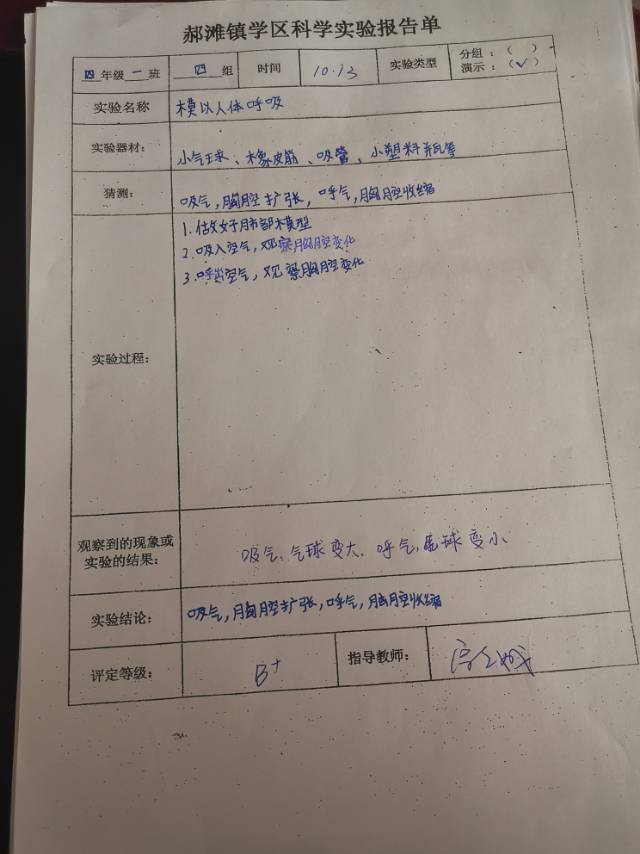 郝滩镇学区科学实验报告单
四年级一班 四组 时间 10.13 实验类型 分组：（ ）
演示：（√）
实验名称 模以人体呼吸
实验器材： 小气球、橡皮筋、吸管、小塑料瓶等
猜测： 吸气，胸腔扩张，呼气，胸腔收缩
实验过程：
1.做好肺部模型
2.吸入空气，观察胸腔变化
3.呼出空气，观察胸腔变化
观察到的现象或
实验的结果：
吸气、气球变大、呼气，气球变小
实验结论： 吸气，胸腔扩张，呼气，胸腔收缩
评定等级： B+ 指导教师：